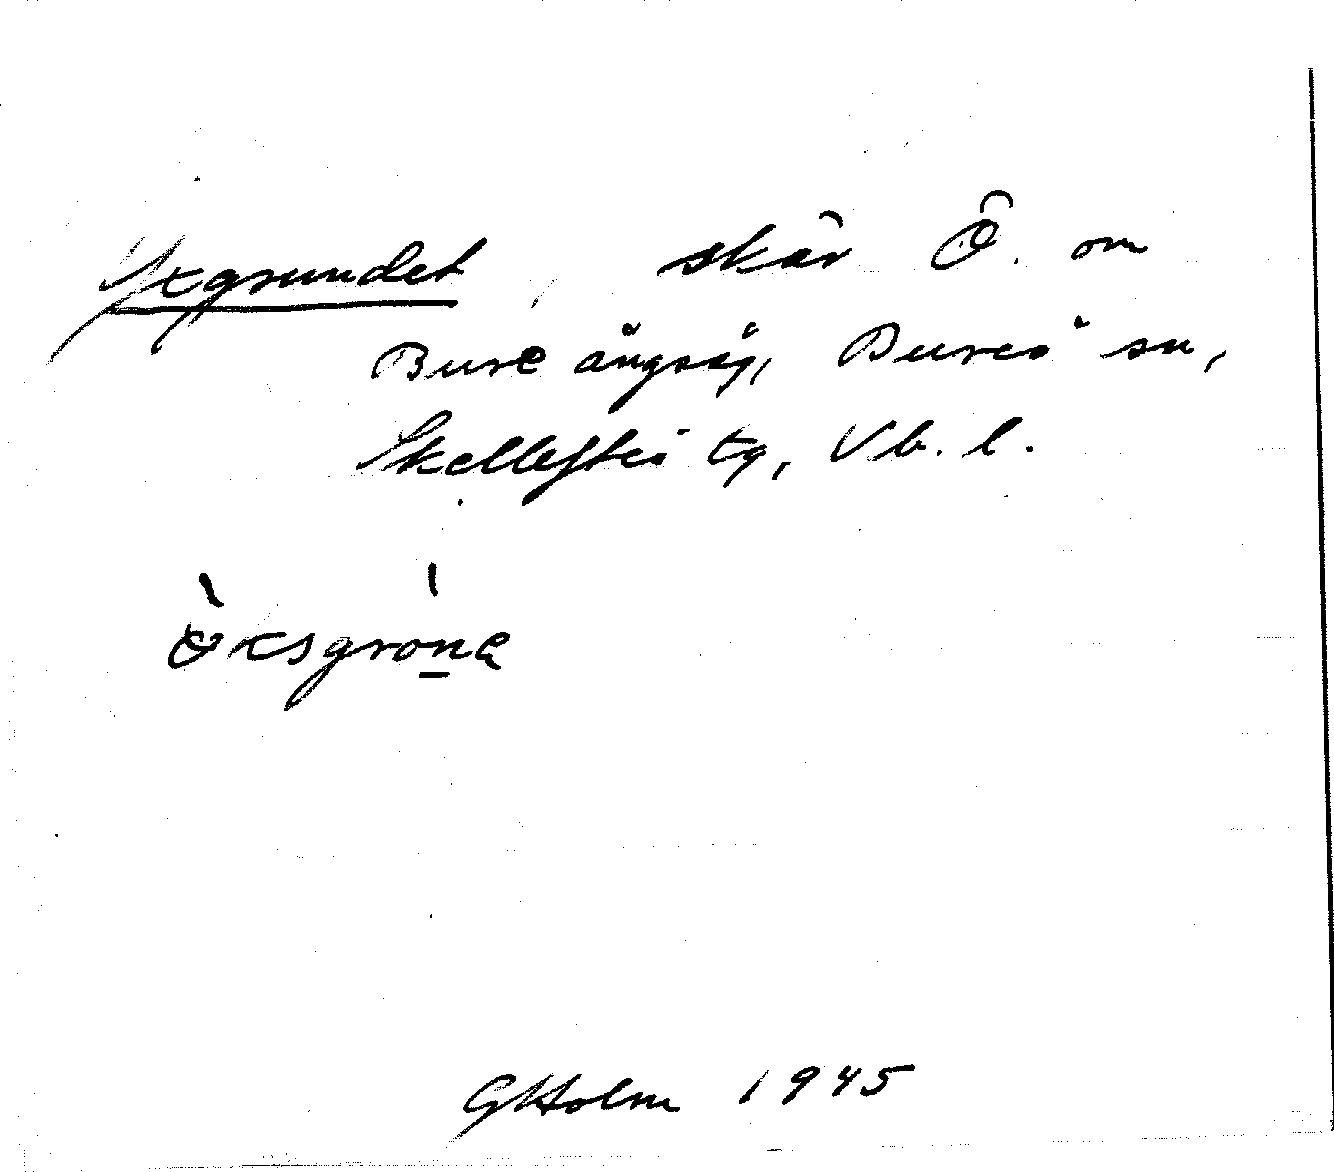 Yxgrundet, skär Ö. om
Bure ångsåg, Bureå sn,
Skellefteå tg, Vb. l.
öksgròne
GHolm 1945